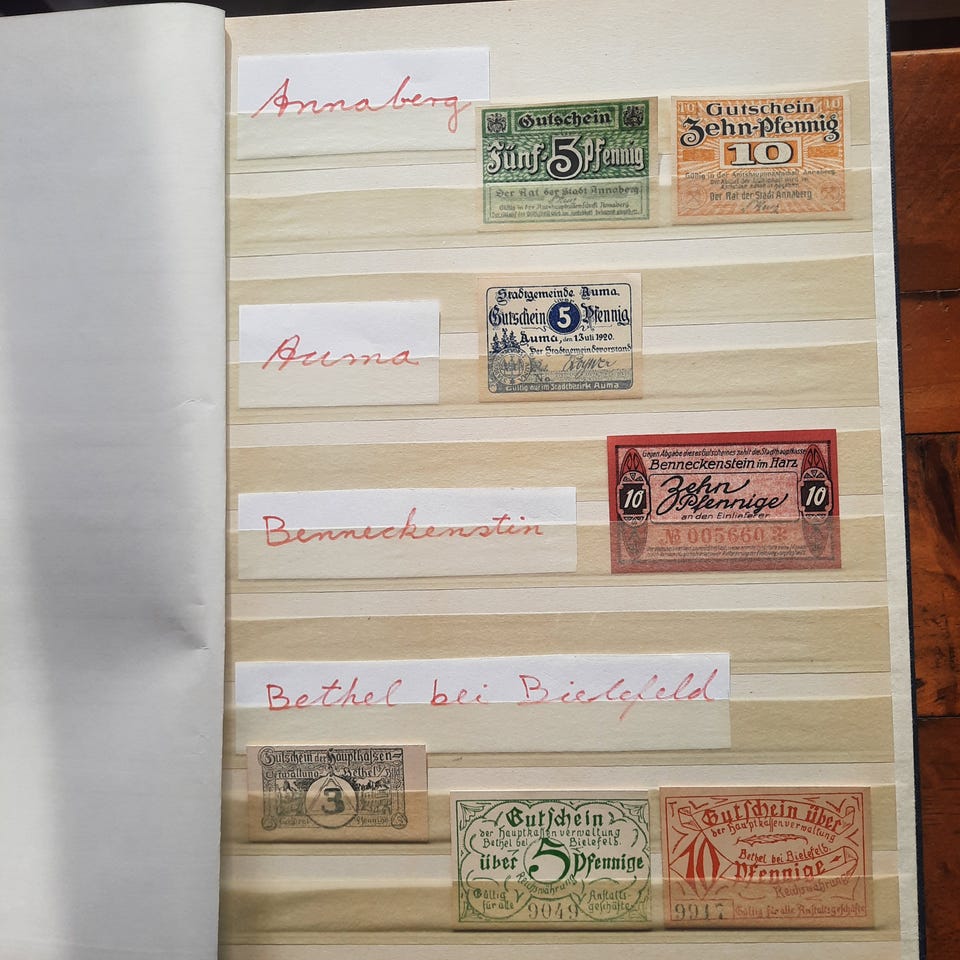 Annaberg
Gutschein
Fünf-5Pfennig
Der Rat der Stadt Annaberg
Gültig in der Amtshauptmannschaft Annaberg
10 Gutschein 10
Zehn-Pfennig
10
Gültig in der Amtshauptmannschaft Annaberg.
Der Rat der Stadt Annaberg
Auma
Stadtgemeinde Auma
Gutschein 5 Pfennig
Auma, den 1 Juli 1920.
Der Stadtgemeindevorstand
No
Gültig nur im Stadtbezirk Auma
Benneckenstin
Gegen Abgabe dieses Gutscheines zahlt die Stadthauptkasse
Benneckenstein im Harz
10 Zehn Pfennige 10
an den Einlieferer
№ 005660 ※
Bethel bei Bielefeld
Gutschein der Hauptkassen-
Verwaltung Bethel
3
Pfennige
Gutschein
der Hauptkassenverwaltung
Bethel bei Bielefeld.
über 5 Pfennige
Reichswährung
Gültig für alle Anstaltsgeschäfte
9049
Gutschein über
der Hauptkassenverwaltung
Bethel bei Bielefeld.
10 Pfennige
Reichswährung
9917 Gültig für alle Anstaltsgeschäfte